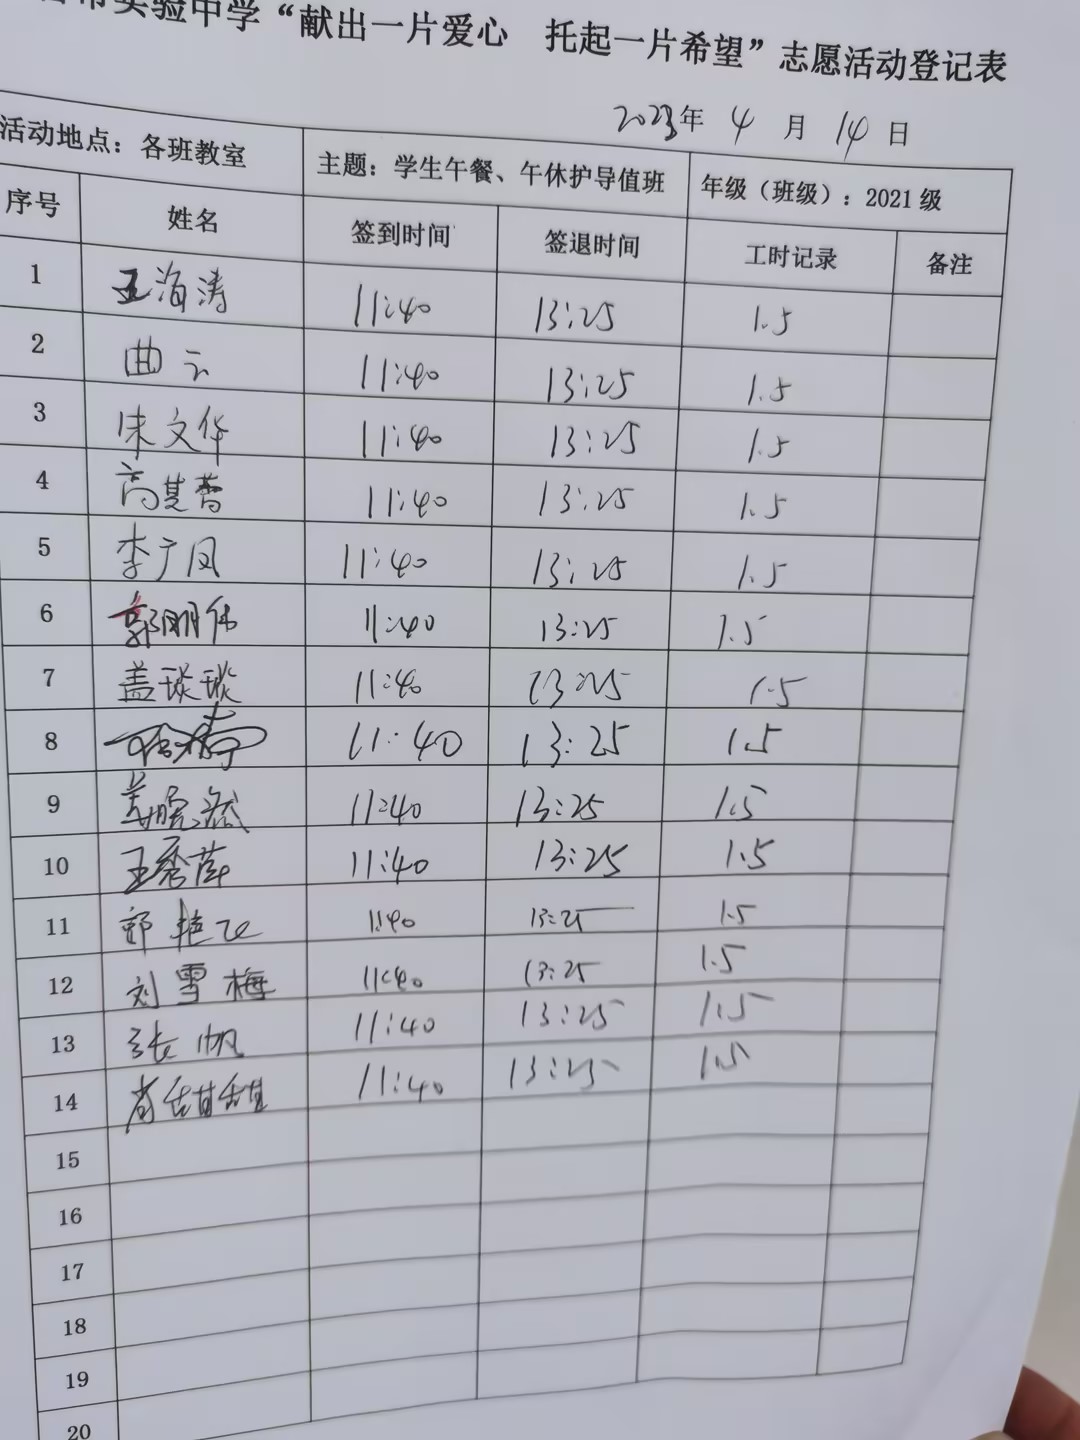 市实验中学“献出一片爱心 托起一片希望”志愿活动登记表
2023年 4 月 14 日
活动地点：各班教室 主题：学生午餐、午休护导值班 年级（班级）：2021级
序号 姓名 签到时间 签退时间 工时记录 备注
1 王海涛 11:40 13:25 1.5
2 曲云 11:40 13:25 1.5
3 宋文华 11:40 13:25 1.5
4 高其普 11:40 13:25 1.5
5 李广凤 11:40 13:25 1.5
6 郭朋伟 11:40 13:25 1.5
7 盖琰琰 11:40 13:25 1.5
8 11:40 13:25 1.5
9 姜晓 11:40 13:25 1.5
10 王秀萍 11:40 13:25 1.5
11 郭艳 11:40 13:25 1.5
12 刘雪梅 11:40 13:25 1.5
13 张帆 11:40 13:25 1.5
14 肖甜甜 11:40 13:25 1.5
15
16
17
18
19
20